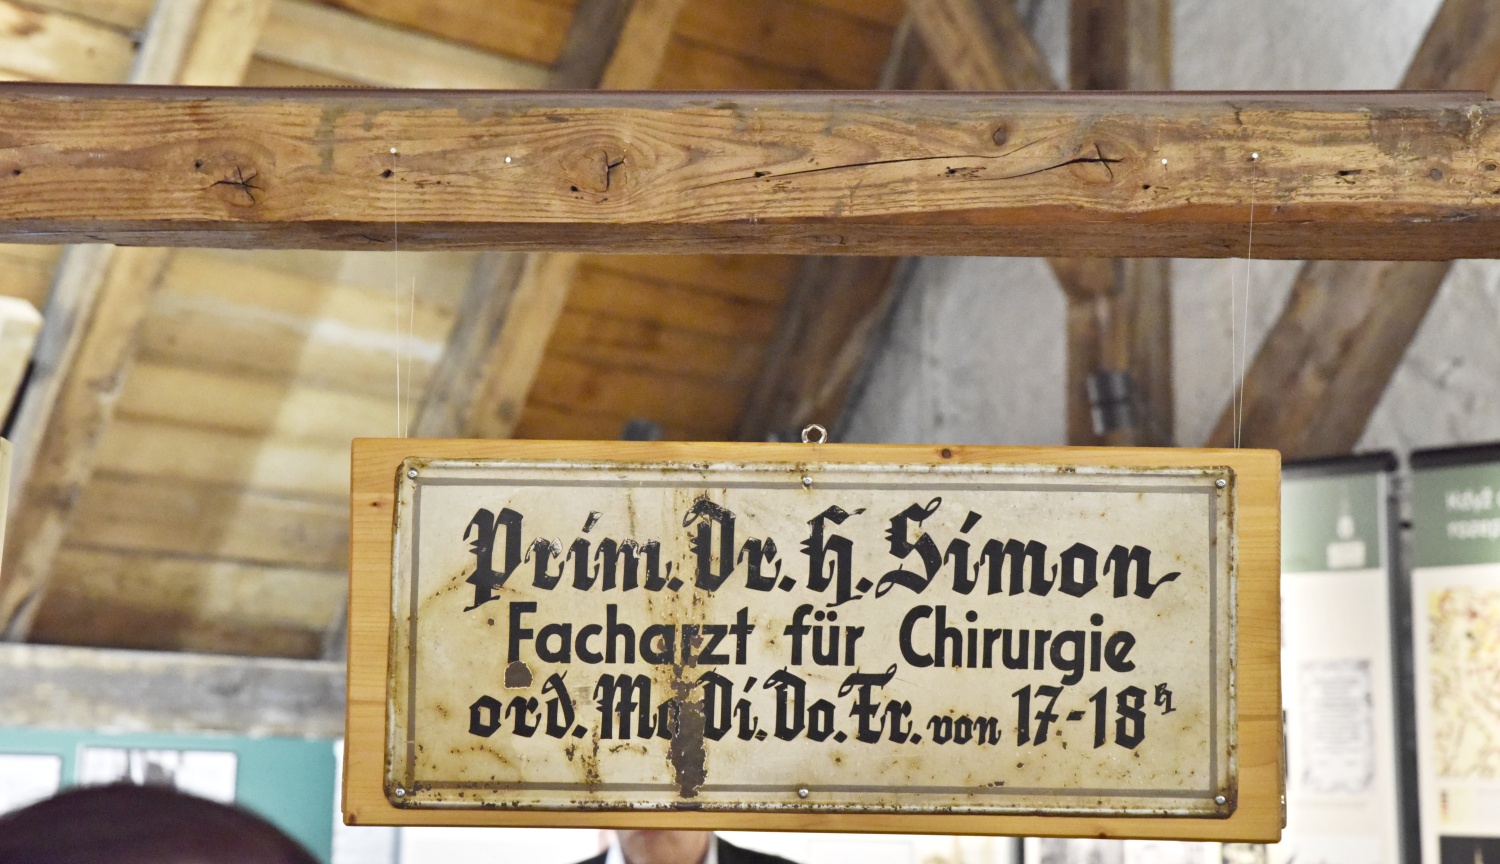 Prim. Dr. H. Simon
Facharzt für Chirurgie
ord. Mo Di. Do. Fr. von 17-18h
Když